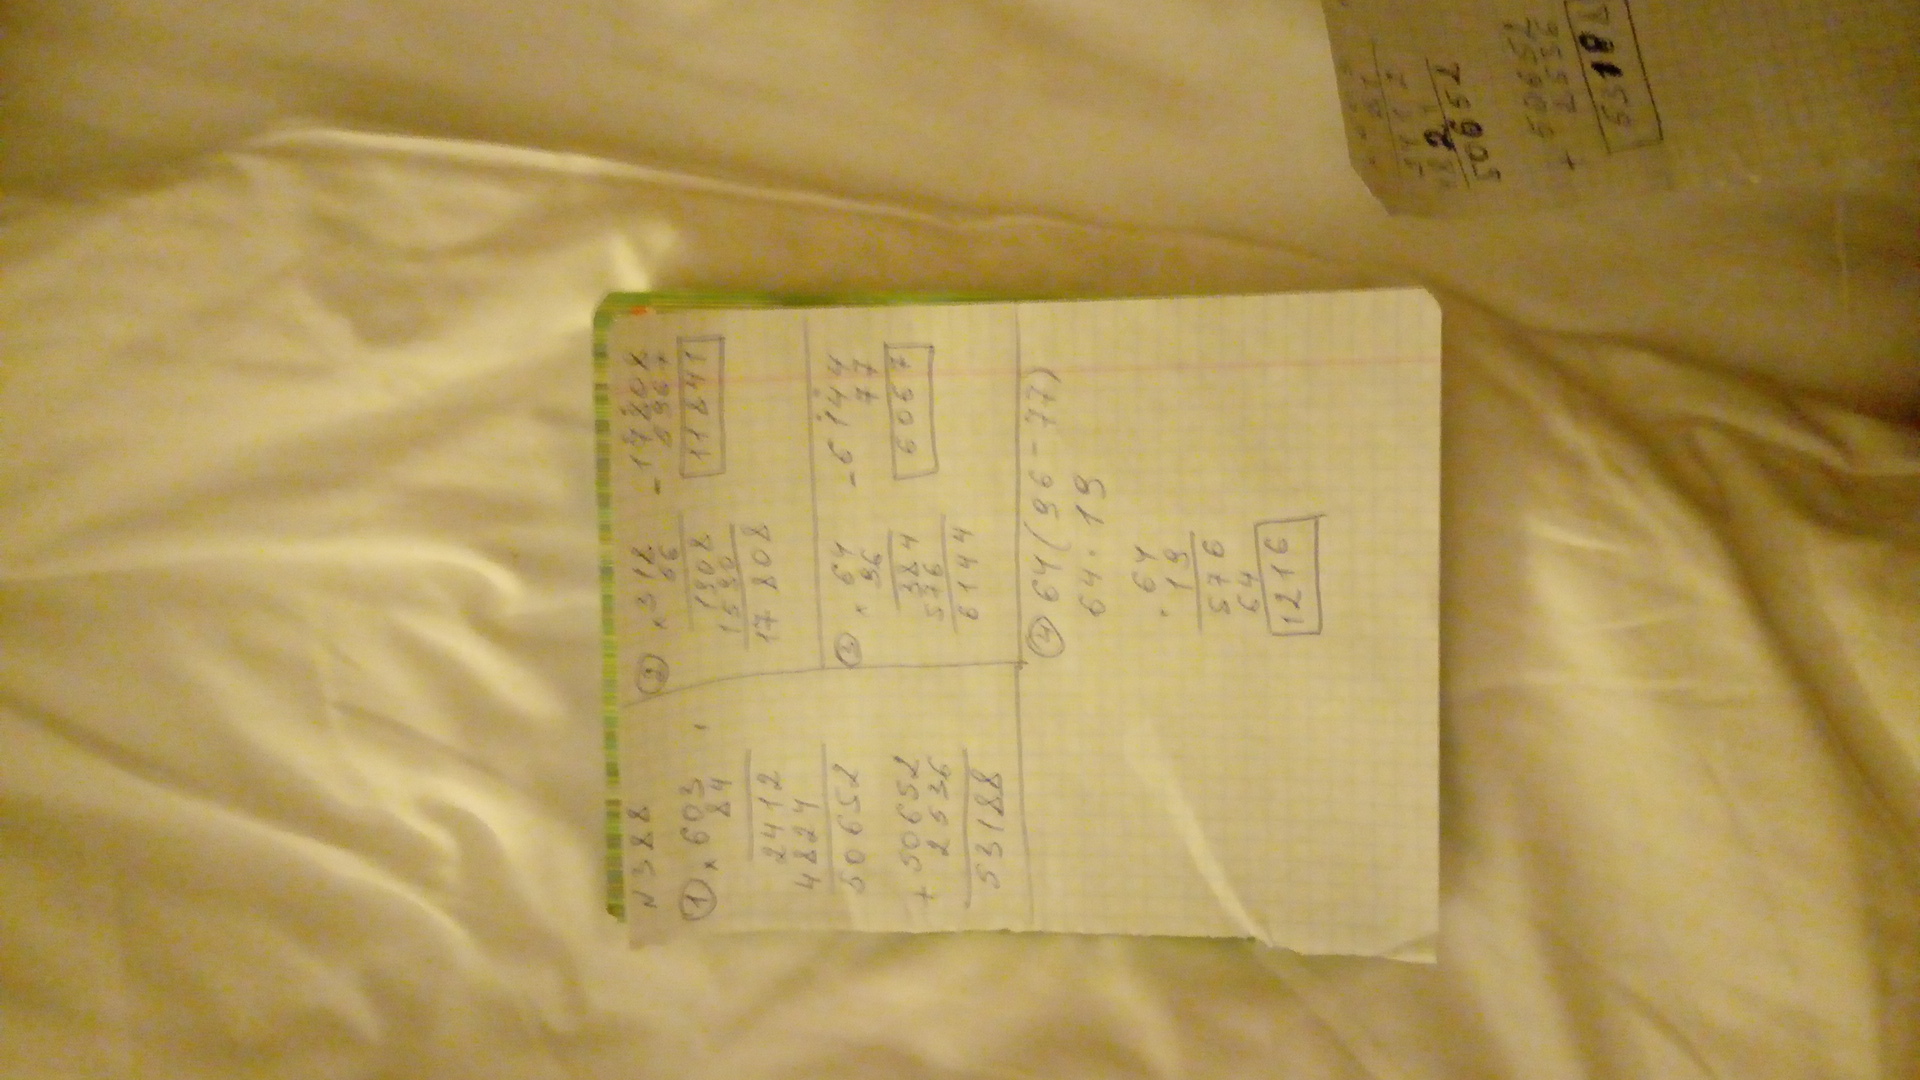 N388
① × 603
84
2412
4824
50652
+ 50652
2536
53188
② × 318
56
1908
1590
17808
- 17808
5967
11841
③ × 64
96
384
576
6144
- 6144
77
6067
④ 64(96-77)
64·19
· 64
19
576
64
1216
50652
+ 50652
2536